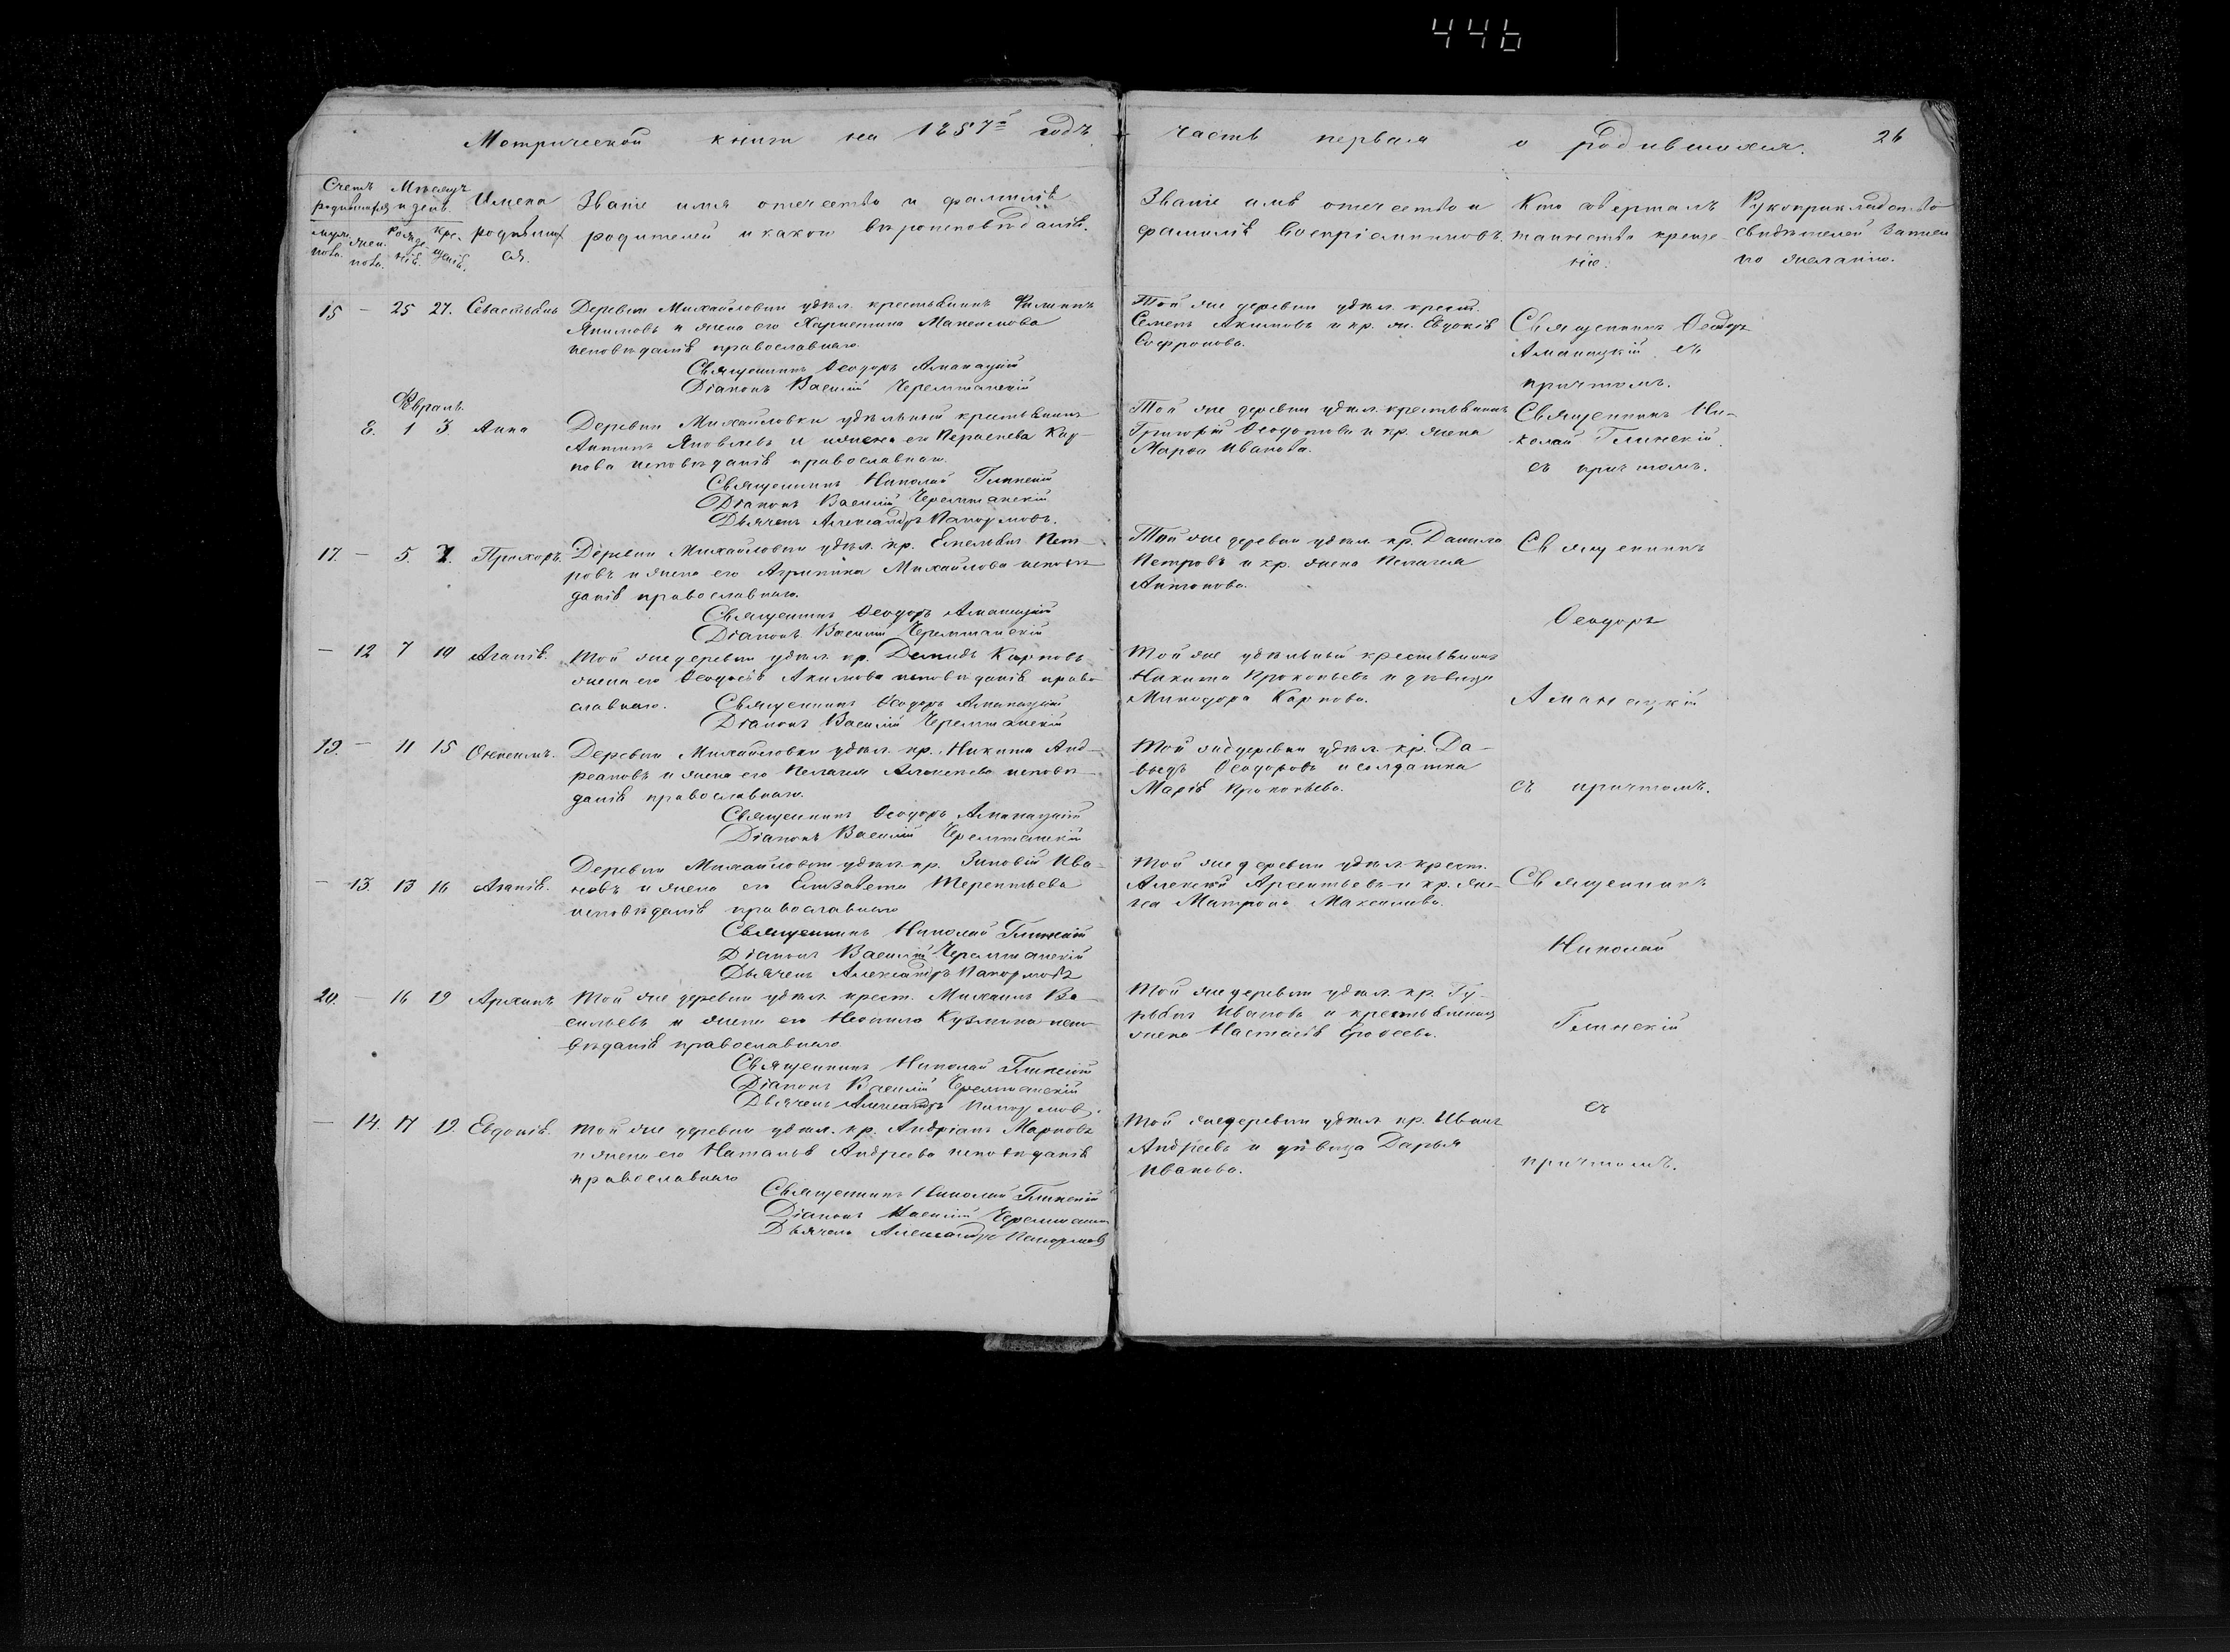 446
Метрической книги на 1857й годъ
Счетъ родившихся
Мѣсяцъ и день.
Имена родившихся.
Званіе имя отечество и фамилія
родителей и какои вѣроисповѣданія.
муж. пола.
жен. пола.
рожде-нія.
кре-щенія.
15 — 25 27. Севастьянъ Деревни Михайловки удѣл. крестьянинъ Филипъ
Якимовъ и жена его Харитина Максимова
исповѣданія православнаго.
Священникъ Ѳеодоръ Аманацкій
Діаконъ Василій Черемшанскій
Февраль.
8. 1 3. Анна Деревни Михайловки удѣльный крестьянинъ
Антипъ Яковлевъ и жена его
исповѣданія православнаго.
Священникъ Николай Глинскій
Діаконъ Василій Черемшанскій
Дьячекъ Александръ Панормовъ.
17 — 5. 7. Прохоръ. Деревни Михайловки удѣл. кр. Емельянъ Пет-
ровъ и жена его Агрипина Михайлова исповѣ
данія православнаго.
Священникъ Ѳеодоръ Аманацкій
Діаконъ Василій Черемшанскій
— 12 7 10 Агапія. Той же деревни удѣл. кр. Демидъ Карповъ
жена его Ѳеодосія Акимова исповѣданія право
славнаго. Священникъ Ѳеодоръ Аманацкій
Діаконъ Василій Черемшанскій
19 — 11 15 Онисимъ. Деревни Михайловки удѣл. кр. Никита Анд-
реановъ и жена его Пелагея Алексеева исповѣ-
данія православнаго.
Священникъ Ѳеодоръ Аманацкій
Діаконъ Василій Черемшанскій
Деревни Михайловки удѣл. кр. Зиновій Ива-
— 13. 13 16 Агапія. новъ и жена его Елизавета Терентьева
исповѣданія православнаго
Священникъ Николай Глинскій
Діаконъ Василій Черемшанскій
Дьячекъ Александръ Панормовъ
20. — 16 19 Архипъ Той же деревни удѣл. крест. Михаилъ Ва-
сильевъ и жена его Неонила Кузмина испо-
вѣданія православнаго.
Священникъ Николай Глинскій
Діаконъ Василій Черемшанскій
Дьячекъ Александръ Панормовъ
— 14. 17 19. Евдокія. Той же деревни удѣл. кр. Андріанъ Марковъ
и жена его Наталья Андреева исповѣданія
православнаго
Священникъ Николай Глинскій
Діаконъ Василій Черемшанск
Дьячекъ Александръ Панормовъ
часть первая о родившихся. 26
Званіе имя отечество и
фамилія воспріемниковъ.
Кто совершалъ
таинство креще-
нія.
Рукоприкладство
свидѣтелей записи
по желанію.
Той же деревни удѣл. крест.
Семенъ Акимовъ и кр. ж. Евдокія
Софронова.
Священникъ Ѳеодоръ
Аманацкій съ
причтомъ.
Той же деревни удѣл. крестьянинъ
Григорій Ѳеодотовъ и кр. жена
Марѳа Иванова.
Священникъ Ни-
колай Глинскій
съ причтомъ.
Той же деревни удѣл. кр. Данила
Петровъ и кр. жена Пелагея
Антонова.
Священникъ
Ѳеодоръ
Той же удѣльный крестьянинъ
Никита Прокопьевъ и дѣвица
Минодора Карпова.
Аманацкій
Той же деревни удѣл. кр. Да-
выдъ Ѳеодоровъ и солдатка
Марія Прокопьева.
съ причтомъ.
Той же деревни удѣл. крест.
Алексѣй Арсентьевъ и кр. же-
на Матрона Максимова.
Священникъ
Николай
Той же деревни удѣл. кр. Гу-
рьянъ Ивановъ и крестьянина
жена Настасія
Глинскій
съ
Той же деревни удѣл. кр. Иванъ
Андреевъ и дѣвица Дарья
Иванова.
причтомъ.